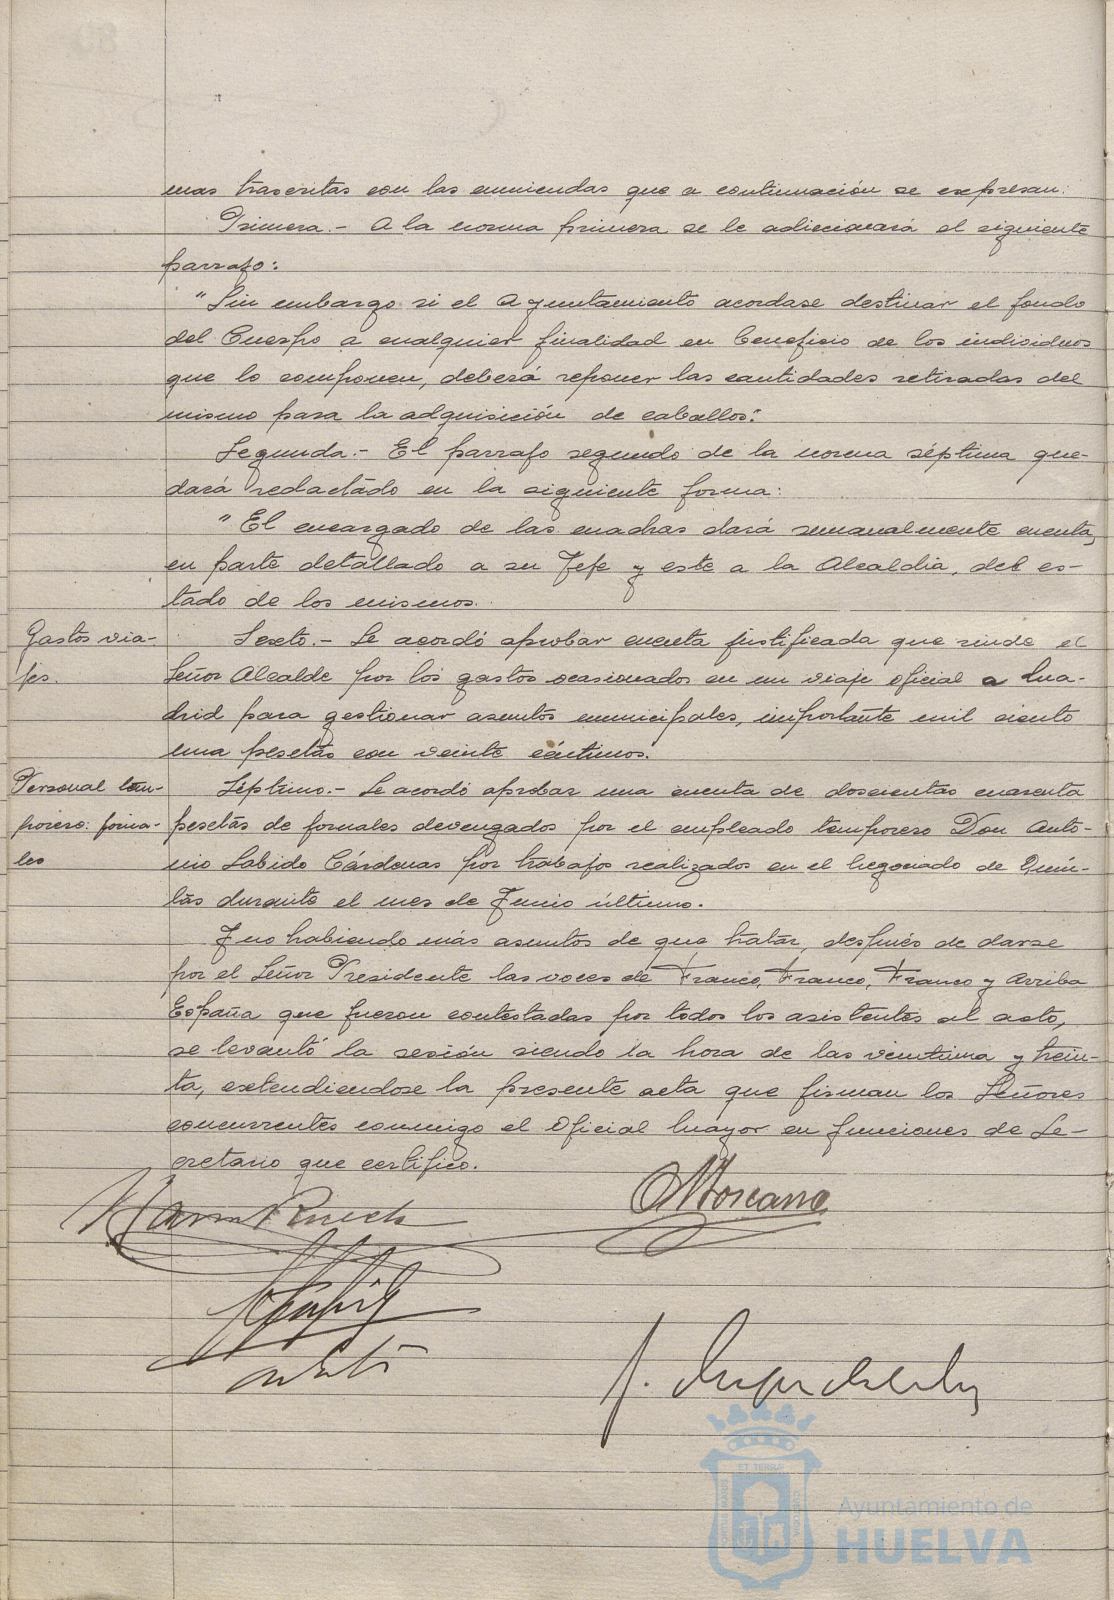 mas trascritas con las enmiendas que a continuación se expresan:
Primera.- A la norma primera se le adiccionará el siguiente
parrafo:
"Sin embargo si el Ayuntamiento acordase destinar el fondo
del Cuerpo a cualquier finalidad en beneficio de los individuos
que lo componen, deberá reponer las cantidades retiradas del
mismo para la adquisición de caballos".
Segunda.- El parrafo segundo de la norma séptima que-
dará redactado en la siguiente forma:
"El encargado de las cuadras dará semanalmente cuenta,
en parte detallado a su Jefe y este a la Alcaldia, del es-
tado de los mismos.
Gastos via-
jes.
Sexto.- Se acordó aprobar cuenta justificada que rinde el
Señor Alcalde por los gastos ocasionados en un viaje oficial a Ma-
drid para gestionar asuntos municipales, importante mil ciento
una pesetas con veinte céntimos.
Personal tem-
porero: jorna-
les
Séptimo.- Se acordó aprobar una cuenta de doscientas cuarenta
pesetas de jornales devengados por el empleado temporero Don Anto-
nio Sabido Cárdenas por trabajos realizados en el Negociado de Quin-
tas durante el mes de Junio último.
Y no habiendo más asuntos de que tratar, después de darse
por el Señor Presidente las voces de Franco, Franco, Franco y Arriba
España que fueron contestadas por todos los asistentes al acto,
se levantó la sesión siendo la hora de las veintiuna y trein-
ta, extendiendose la presente acta que firman los Señores
concurrentes conmigo el Oficial Mayor en funciones de Se-
cretario que certifico.
Ayuntamiento de
HUELVA